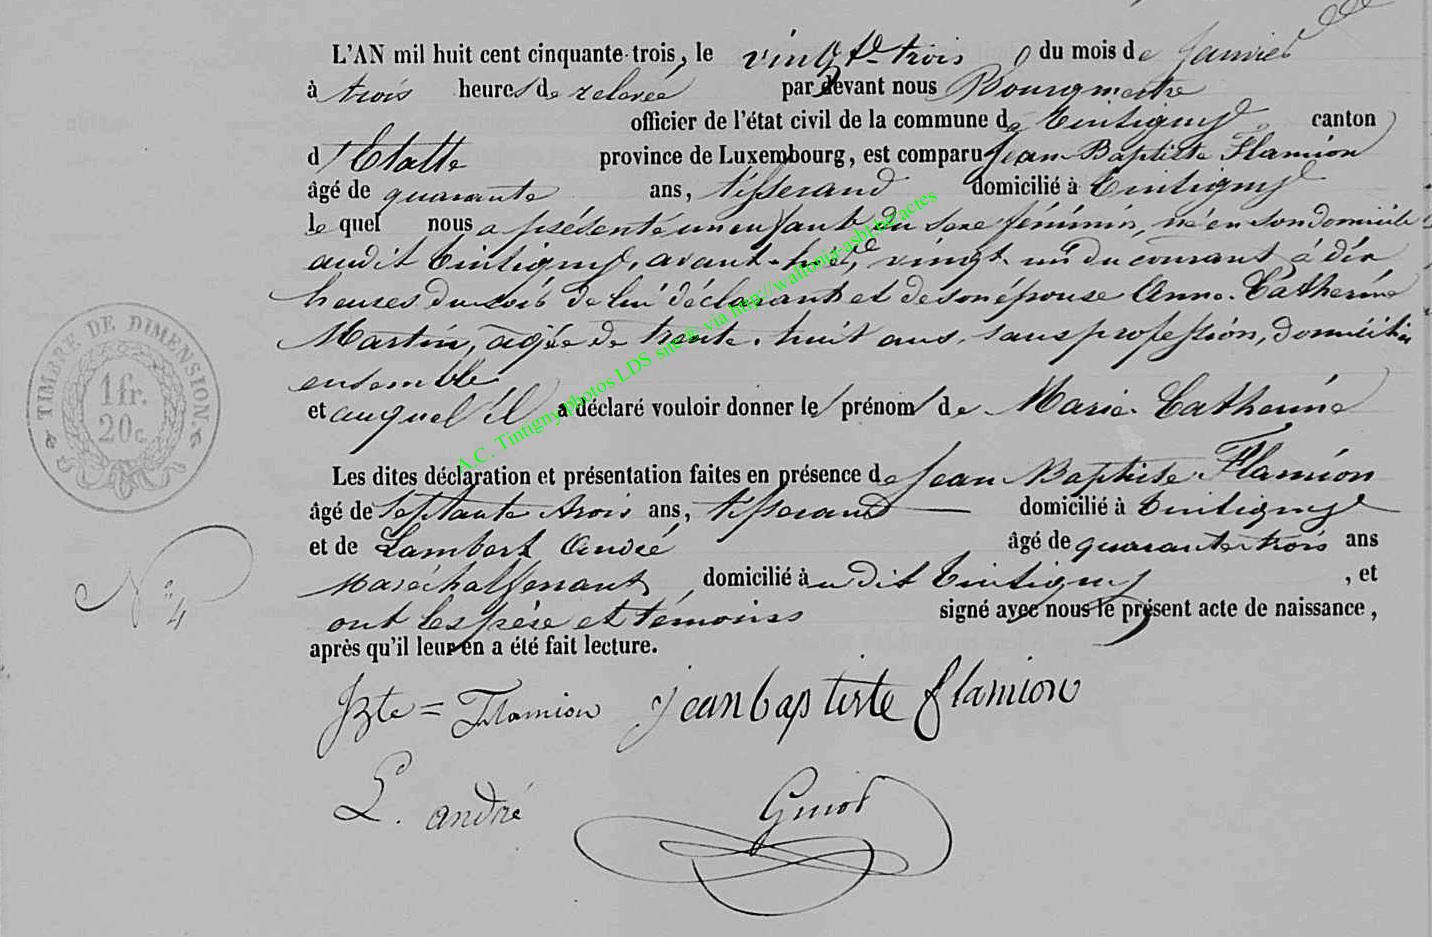 L'AN mil huit cent cinquante-trois, le vingt-trois du mois de Janvier
à trois heures de relevée par devant nous Bourgmestre
officier de l'état civil de la commune de Tintigny canton
d'Etalle province de Luxembourg, est comparu Jean Baptiste Flamion
âgé de quarante ans, tisserand domicilié à Tintigny
le quel nous a présenté un enfant du sexe féminin, né en son domicile
audit Tintigny, avant-hier, vingt un du courant à dix
heures du soir de lui déclarant et de son épouse Anne-Catherine
Martin, agée de trente-huit ans, sans profession, domiciliés
ensemble
et auquel il a déclaré vouloir donner le prénom de Marie-Catherine
Les dites déclaration et présentation faites en présence de Jean Baptiste Flamion
âgé de septante trois ans, tisserand domicilié à Tintigny
et de Lambert André âgé de quarante trois ans
maréchal ferrant, domicilié audit Tintigny, et
ont les père et témoins signé avec nous le présent acte de naissance,
après qu'il leur en a été fait lecture.
TIMBRE DE DIMENSION.
1 fr.
20 c.
N° 4
JBte = Flamion jean baptiste flamion
L. andré Guiot
A.C. Tintigny photos LDS site © via http://wallonia-asbl.be/actes